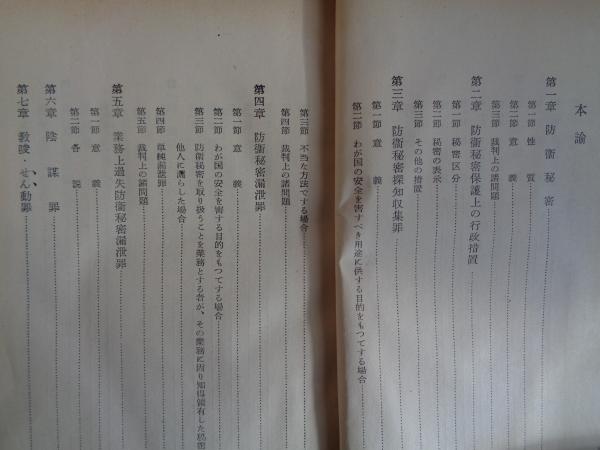 本論
第一章 防衛秘密
第一節 性質
第二節 意義
第三節 裁判上の諸問題
第二章 防衛秘密保護上の行政措置
第一節 秘密区分
第二節 秘密の表示
第三節 その他の措置
第三章 防衛秘密探知収集罪
第一節 意義
第二節 わが国の安全を害すべき用途に供する目的をもつてする場合
第三節 不当な方法でする場合
第四節 裁判上の諸問題
第四章 防衛秘密漏泄罪
第一節 意義
第二節 わが国の安全を害する目的をもつてする場合
第三節 防衛秘密を取り扱うことを業務とする者が、その業務に因り知得領有した防衛秘密
他人に漏らした場合
第四節 単純漏泄罪
第五節 裁判上の諸問題
第五章 業務上過失防衛秘密漏泄罪
第一節 意義
第二節 各説
第六章 陰謀罪
第七章 教唆・せん動罪